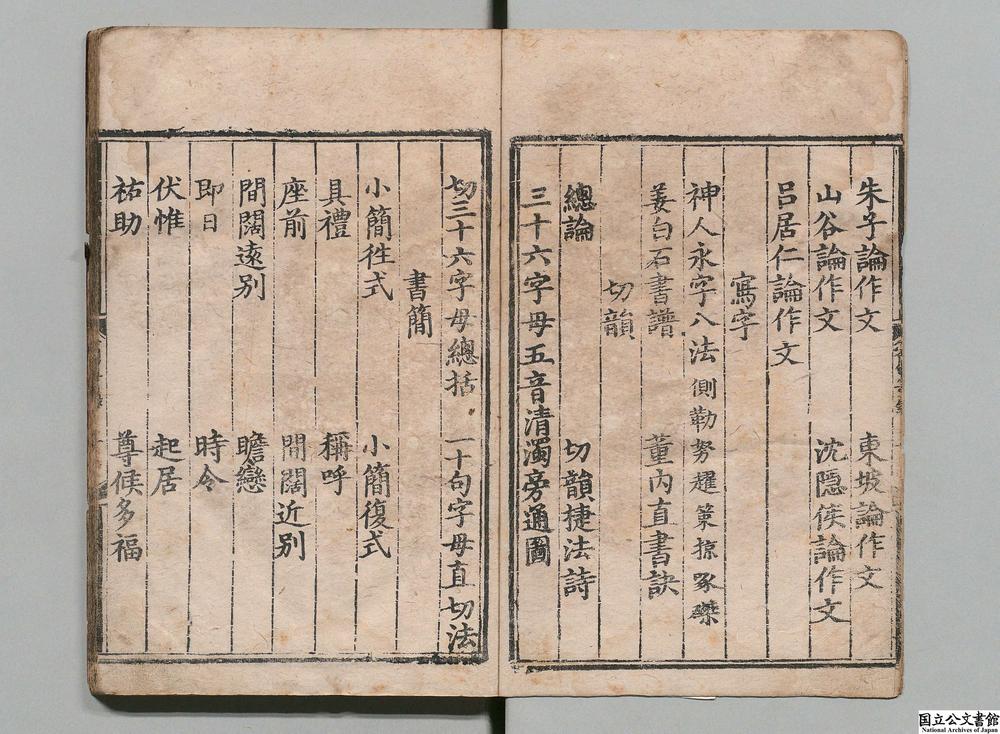 朱子論作文　東坡論作文
山谷論作文　沈隱侯論作文
呂居仁論作文
寫字
神人永字八法　側勒努趯策掠啄磔
姜白石書譜　董內直書訣
切韻
總論　切韻捷法詩
三十六字母五音清濁旁通圖
切三十六字母總括　一十句字母直切法
書簡
小簡徃式　小簡復式
具禮　稱呼
座前　間闊近別
間闊遠別　瞻戀
即日　時令
伏惟　起居
祐助　尊候多福
国立公文書館
National Archives of Japan